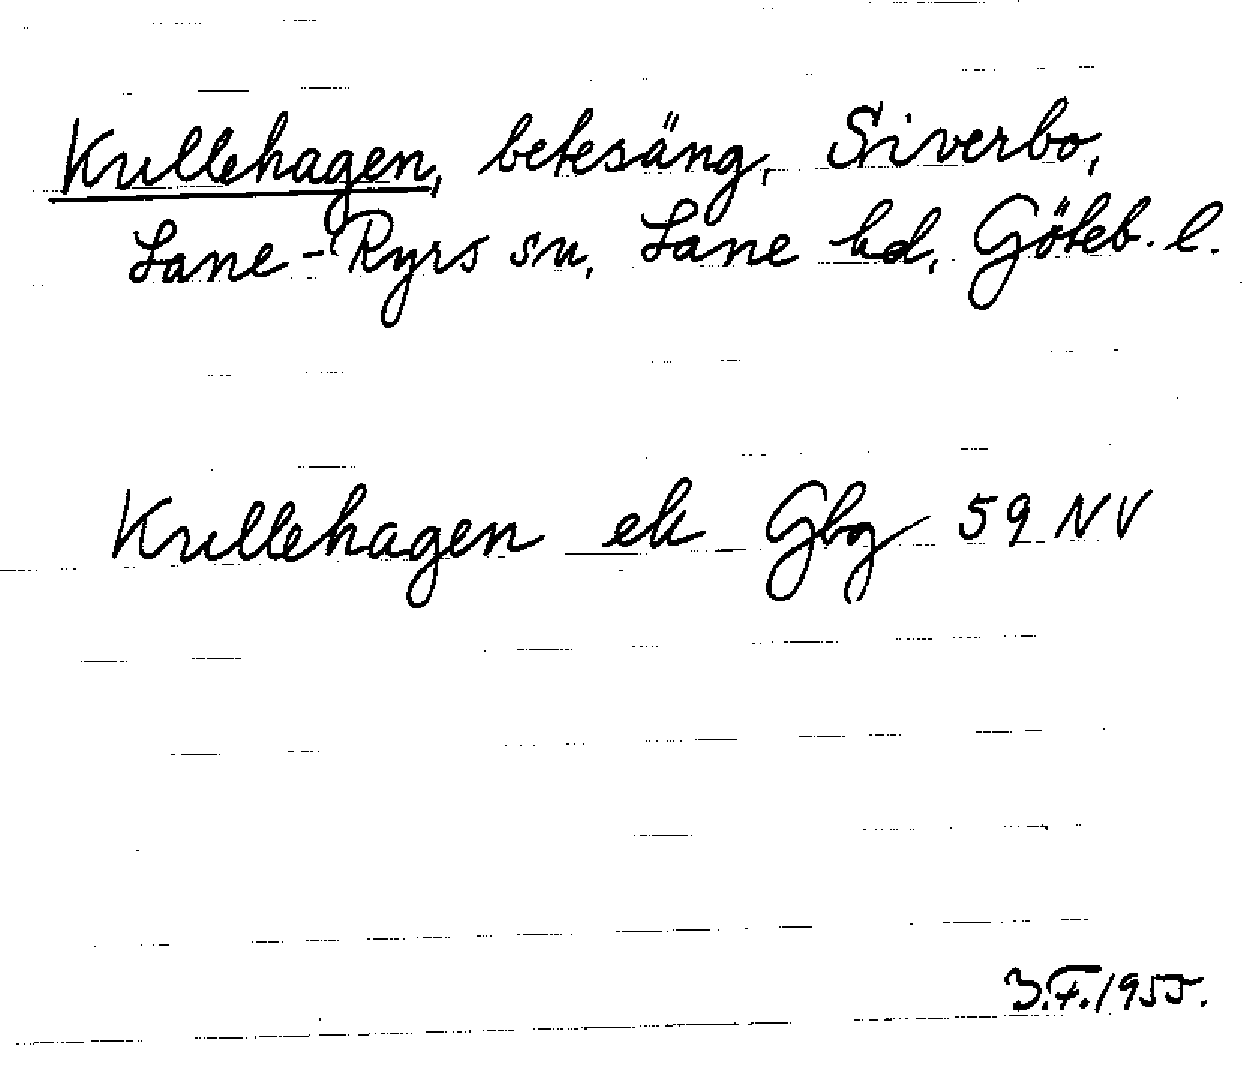 Kullehagen, betesäng, Siverbo,
Lane-Ryrs sn, Lane hd, Göteb. l.
Kullehagen ek Gbg 59 NV
J.F. 1955.